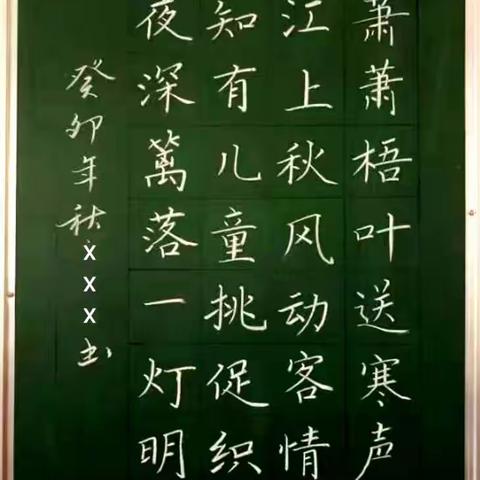 萧萧梧叶送寒声
江上秋风动客情
知有儿童挑促织
夜深篱落一灯明
癸卯年秋XXX书